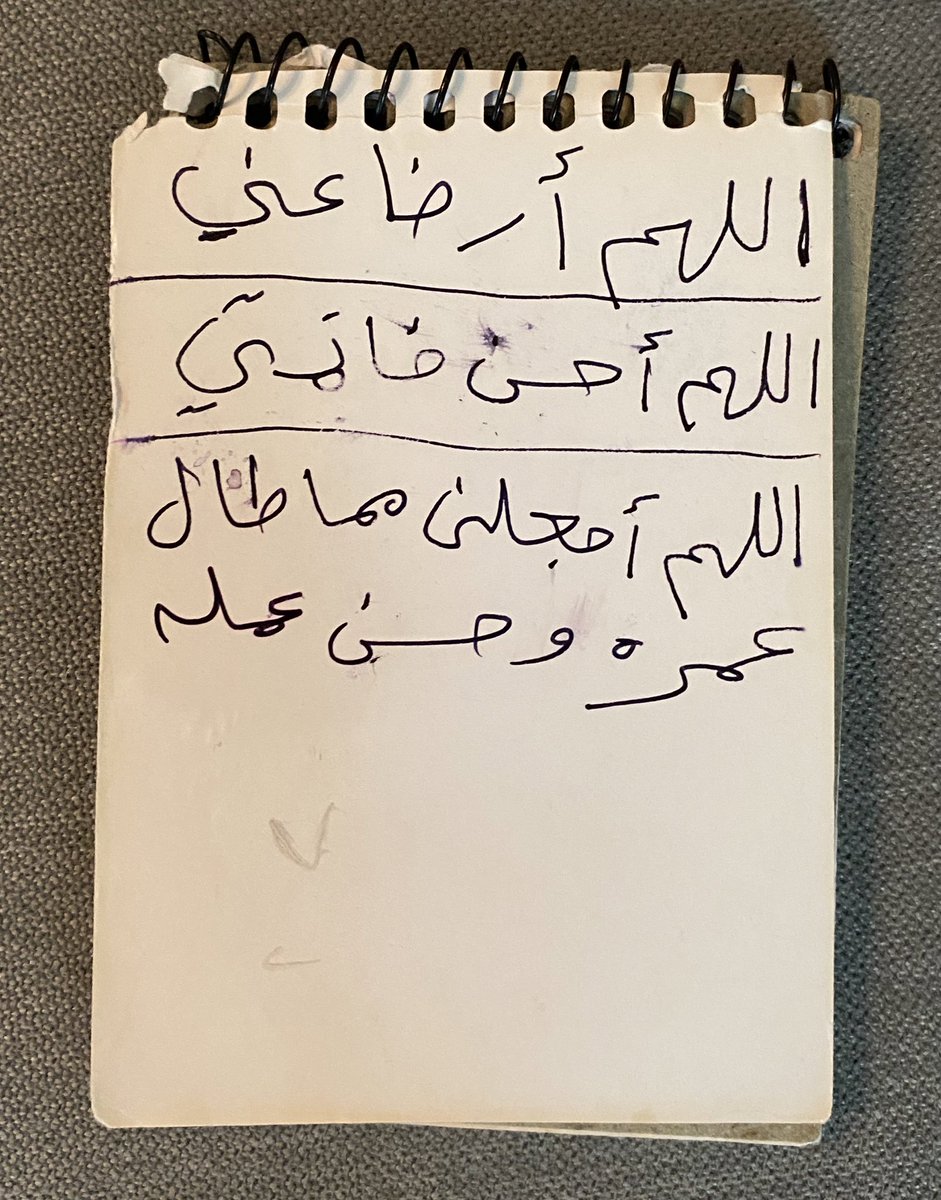 اللهم أرضا عني
اللهم أحسن خاتمتي
اللهم أجعلني مما طال
عمره وحسن عمله